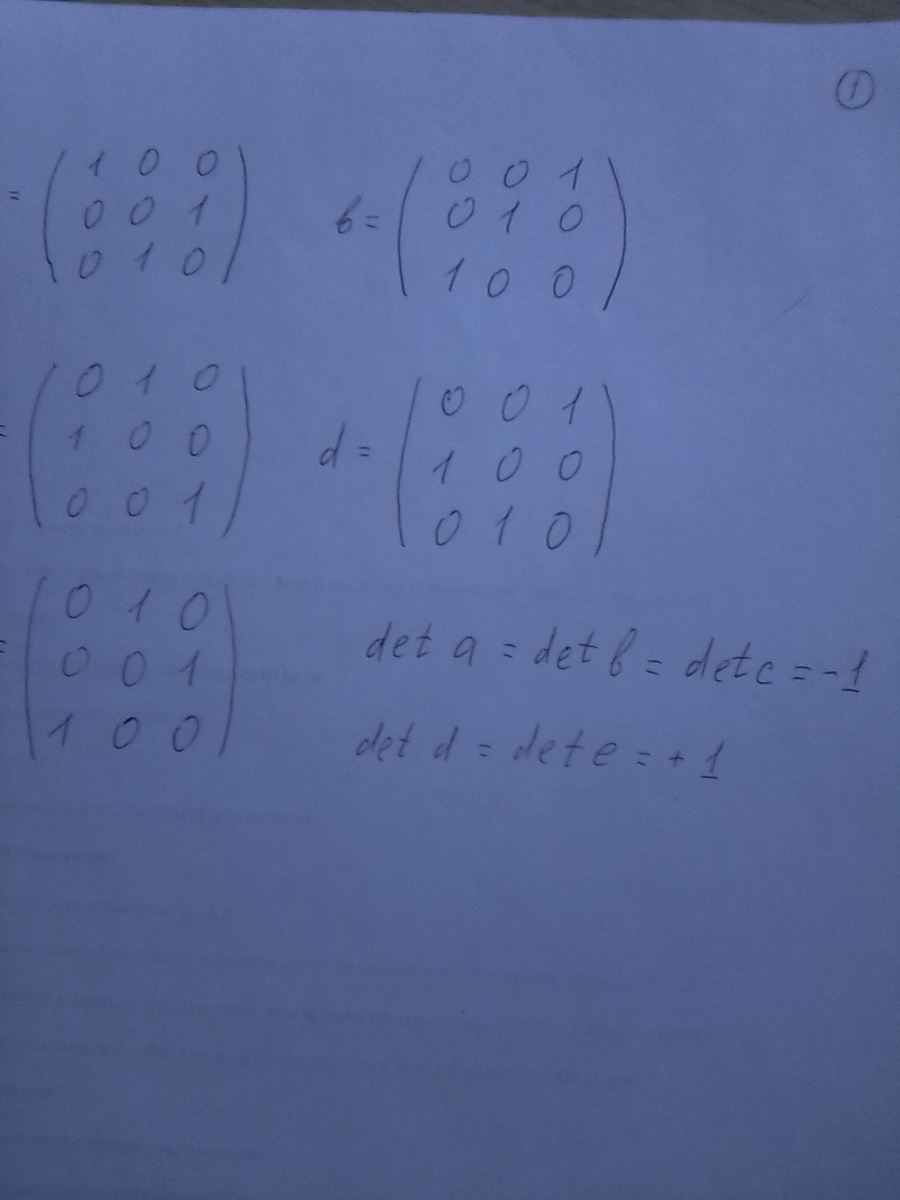 ①
= ( 1 0 0 b = ( 0 0 1
0 0 1 0 1 0
0 1 0 ) 1 0 0 )
= ( 0 1 0 d = ( 0 0 1
1 0 0 1 0 0
0 0 1 ) 0 1 0 )
= ( 0 1 0
0 0 1
1 0 0 )
det a = det b = det c = -1
det d = det e = + 1